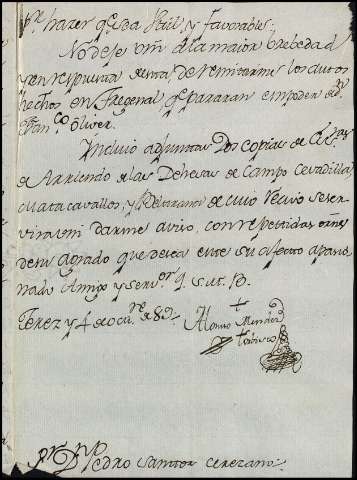 hazer qe sea Util, y favorable.
No deje Vm a la maior brebedad
y en respuesta de esta, de remitarme los autos
hechos en Fregenal qe pararan en poder de Dn
Franco Oliver.
Incluio adjuntas Dos copias de Escras
de Arriendo de las Dehesas de Campo Cevadilla,
Matacavallos, y de cuio Recivo se ser
vira Vm darme aviso, con repetidas ornes
de su Agrado que desea este su afecto apasio
nado Amigo y servor q. S. M. B.
Xerez y 4 de octure de 89
Alonso Mendez
Dn Pedro Santos Cerezano.